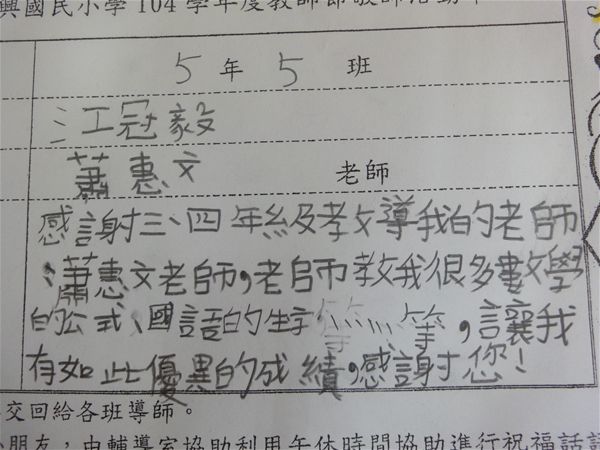 興國民小學104學年度教師節敬師活動
5年5班
江冠毅
蕭惠文 老師
感謝三、四年級教導我的老師
:蕭惠文老師,老師教我很多數學
的公式、國語的生字......等,讓我
有如此優異的成績,感謝您!
交回給各班導師。
小朋友,由輔導室協助利用午休時間協助進行祝福話語